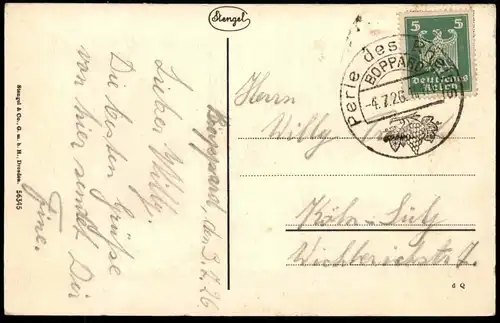 Stengel
Stengel & Co., G. m. b. H., Dresden. 56345
Boppard, den 3.7.26
Lieber Willy.
Die besten Grüße
von hier sendt Dir
Fine.
Perle des
BOPPARD
-4.7.26.
5 5
Deutsches
Reich
Herrn
Willy
Köln-Sülz
d Q